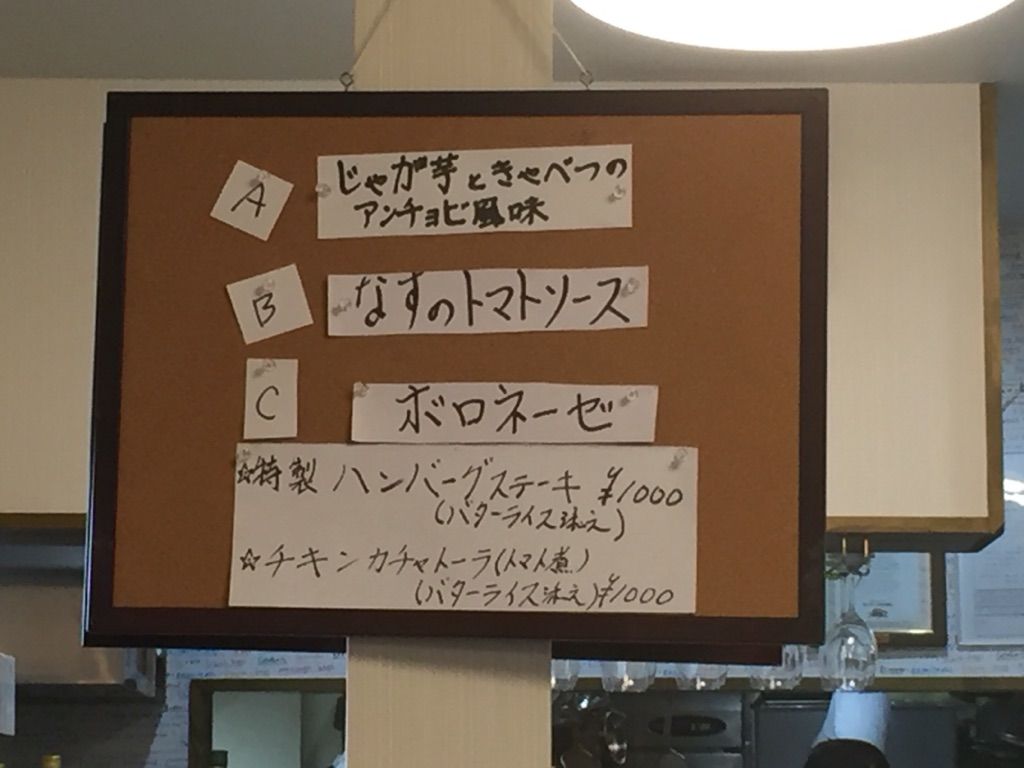 A じゃが芋ときゃべつの
アンチョビ風味
B なすのトマトソース
C ボロネーゼ
☆特製 ハンバーグステーキ ¥1000
(バターライス添え)
☆チキンカチャトーラ(トマト煮)
(バターライス添え)¥1000